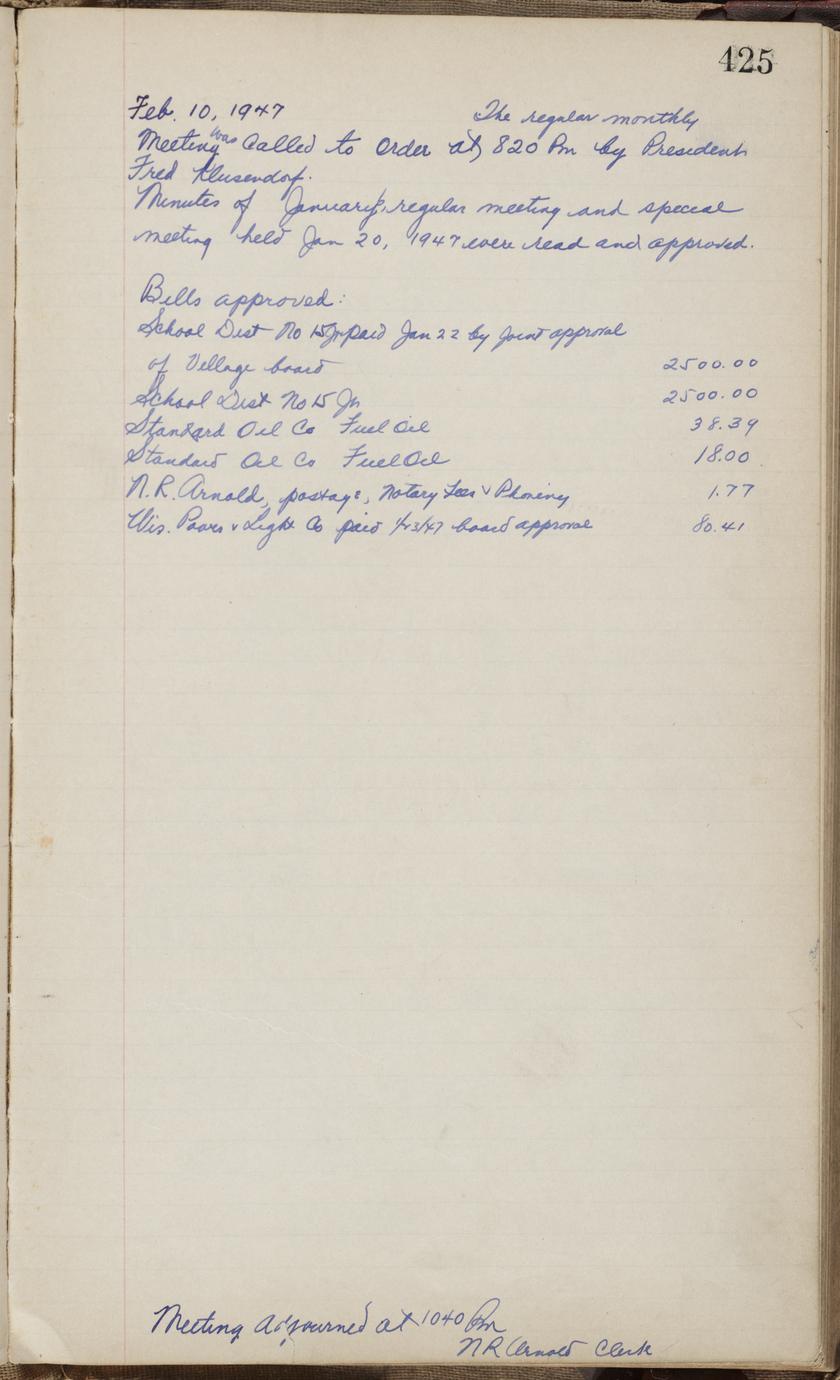 425
Feb. 10, 1947 The regular monthly
Meeting was Called to order at 820 Pm by President
Fred Klusendorf.
Minutes of January regular meeting and special
meeting held Jan 20, 1947 were read and approved.
Bills approved:
School Dist No 15 Jt paid Jan 22 by joint approval
of Village board 2500.00
School Dist No 15 Jt 2500.00
Standard Oil Co Fuel Oil 38.39
Standard Oil Co Fuel Oil 18.00
N.R. Arnold, postage, Notary Fees & Phoning 1.77
Wis. Power & Light Co paid 1/23/47 board approval 80.41
Meeting adjourned at 1040 Pm
N R Arnold Clerk